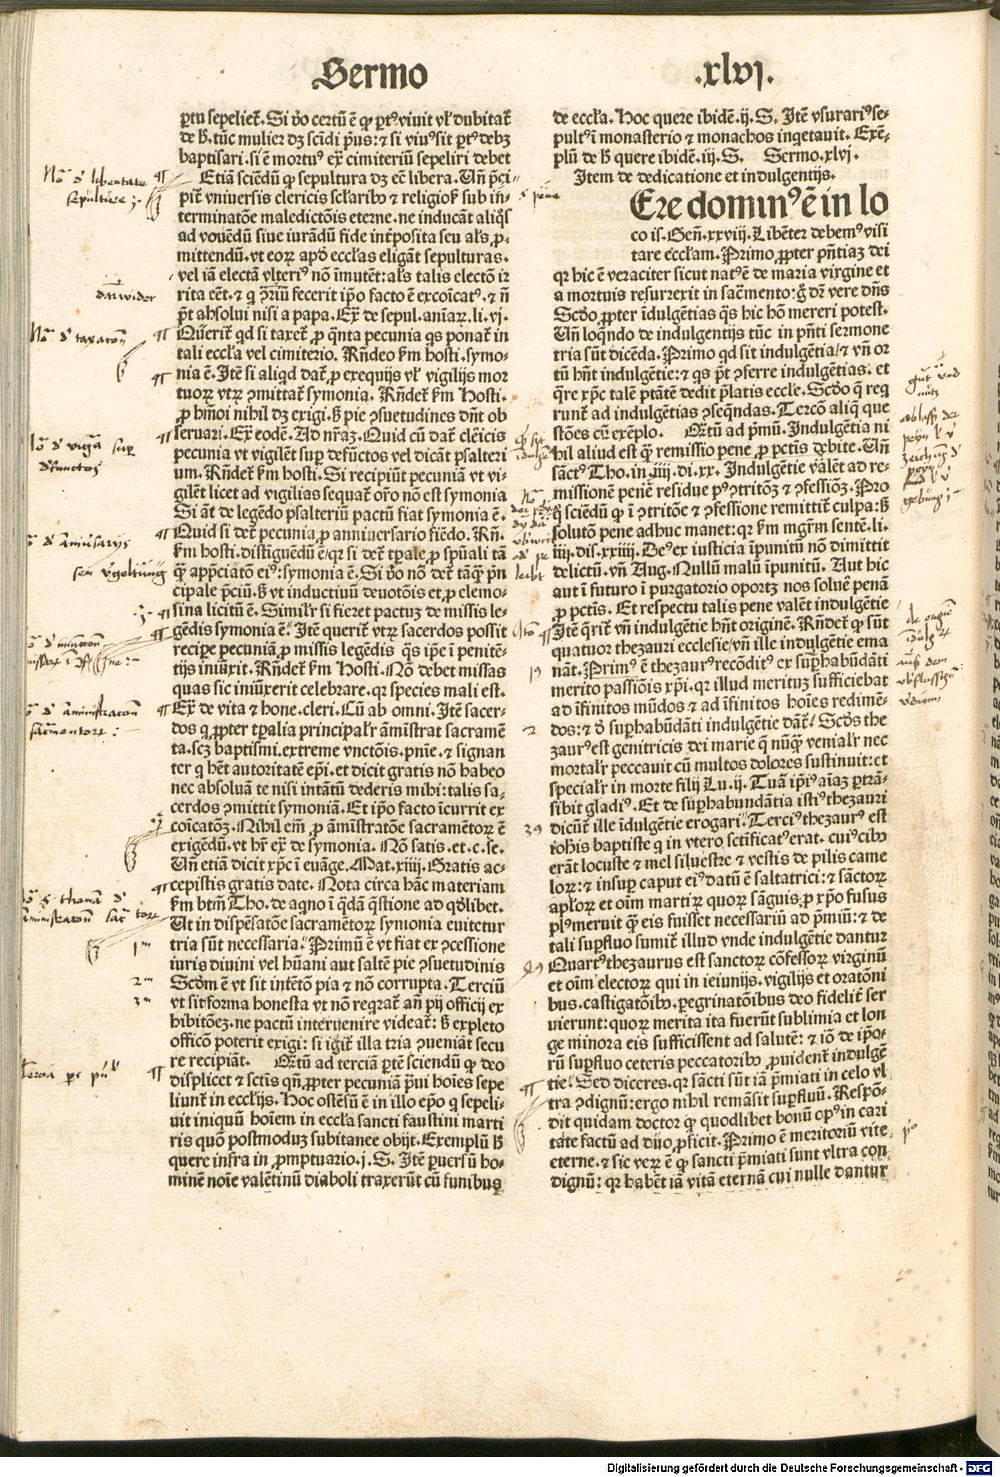 Sermo .xlvj.
ptu sepeliet̄. Si v̊o certū ē qꝫ ptꝰ viuit vl̄ dubitat̄
de ħ. tūc mulier dꝫ scīdi pꝰus: ⁊ si viuꝰ sit ptꝰ debꝫ
baptisari. si ē mortuꝰ ex̄ cimiteriū sepeliri debet
Etiā sciēdū qꝫ sepultura dꝫ eē libera. Vn̄ p̄ci-
pit̄ vniuersis clericis scl̄aribꝰ ⁊ religiosꝭ sub in̄-
terminatōe maledictōis eterne. ne inducāt aliq̄s
ad vouēdū siue iurādū fide int̄posita seu al̄s ꝓ-
mittendū. vt eoꝝ apd̄ eccl̄as eligāt sepulturas.
vel iā electā vlteriꝰ nō imutēt: al̄s talis electō ir
rita cēt. ⁊ q ꝯ̄riū fecerit ip̄o facto ē excoīcatꝰ. ⁊ n̄
p̄t absolui nisi a papa. Ex̄ de sepul. aniaꝝ. li. vj.
Querit̄ qd si taxet̄ ꝓ q̄nta pecunia qs ponat̄ in
tali eccl̄a vel cimiterio. Rn̄deo ẜm hosti. symo-
nia ē. Itē si aliqd dat̄ ꝓ exequijs vl̄ vigilijs mor
tuoꝝ vtꝝ ꝯmittat̄ symonia. Rn̄det̄ ẜm Hosti.
ꝓ hm̄oi nihil dꝫ exigi. ħ pie ꝯsuetudines dn̄t ob
seruari. Ex̄ eodē. Ad nr̄az. Quid cū dat̄ clēicis
pecunia vt vigilēt sup̱ defūctos vel dicāt psalteri
um. Rn̄det̄ ẜm hosti. Si recipiūt pecuniā vt vi-
gilēt licet ad vigilias sequat̄ or̄o nō est symonia
Si āt de legēdo psalteriū pactū fiat symonia ē.
Quid si det̄ pecunia ꝓ anniuersario fiēdo. Rn̄.
ẜm hosti. distiguēdū ē/qꝛ si det̄ tp̄ale ꝓ spūali tā
q̄ꝫ app̄ciatō eiꝰ: symonia ē. Si v̊o nō det̄ tāq̄ꝫ pn̄
cipale p̄ciū. ħ vt inductiuū deuotōis et ꝓ elemo-
sina licitū ē. Simil̄r si fieret pactuꝫ de missis le-
gēdis symonia ē. Itē querit̄ vtꝝ sacerdos possit
recipe pecuniā ꝓ missis legēdis qs ip̄e ī penitē-
tijs iniūxit. Rn̄det̄ ẜm Hosti. Nō debet missas
quas sic iniūxerit celebrare. qꝛ species mali est.
Ex̄ de vita ⁊ hone. cleri. Cū ab omni. Itē sacer-
dos q ꝓpter tp̄alia principal̄r āmistrat sacramē
ta. scꝫ baptismi. extreme vnctōis. pn̄ie. ⁊ signan
ter q hēt autoritatē ep̄i. et dicit gratis nō habeo
nec absoluā te nisi intātū dederis mihi: talis sa-
cerdos ꝯmittit symoniā. Et ip̄o facto īcurrit ex
coīcatōꝫ. Nihil em̄ ꝓ āmistratōe sacramētoꝝ ē
exigēdū. vt hr̄ ex̄ de symonia. Nō satis. et. c. se.
Vn̄ etiā dicit xp̄c ī euāge. Mat. xiiij. Gratis ac-
cepistis gratis date. Nota circa hāc materiam
ẜm btm̄ Tho. de aqno ī q̄dā q̄stione ad qd̄libet.
Vt in dispēsatōe sacramētoꝝ symonia euitetur
tria sūt necessaria. Primū ē vt fiat ex ꝯcessione
iuris diuini vel hūani aut saltē pie ꝯsuetudinis
Scd̄m ē vt sit intētō pia ⁊ nō corrupta. Terciū
vt sit forma honesta vt nō reqrat̄ an̄ pij officij ex
hibitōeꝫ. ne pactū interuenire videat̄: ħ expleto
officō poterit exigi: si igit̄ illa tria ꝯueniāt secu
re recipiāt. Qr̄tū ad terciā p̄tē sciendū qꝫ deo
displicet ⁊ sctīs qn̄ ꝓpter pecuniā p̄ui hoīes sepe
liunt̄ in eccl̄ijs. Hoc ostēsū ē in illo ep̄o q sepeli-
uit iniquū hoīem in eccl̄a sancti faustini marti
ris quō postmoduꝫ subitanee obijt. Exemplū ħ
quere infra in ꝓmptuario. j. S. Itē ꝑuersū ho-
minē noīe valētinū diaboli traxerūt cū funibus
de eccl̄a. Hoc quere ibidē. ij. S. Itē vsurariꝰ se-
pultꝰ ī monasterio ⁊ monachos inqetauit. Exē-
plū de ħ quere ibidē. iij. S. Sermo. xlvj.
Item de dedicatione et indulgentijs.
Ere dominꝰ ē in lo
co is. Gen̄. xxviij. Libēter debemꝰ visi
tare eccl̄am. Primo ꝓpter pn̄tiaꝫ dei
qꝛ hic ē veraciter sicut natꝰ ē de maria virgine et
a mortuis resurrexit in sac̄mento: g̊ dr̄ vere dn̄s
Scd̊o ꝓpter īdulgētias q̄s hic hō mereri potest.
Vn̄ loq̄ndo de indulgentijs tūc in pn̄ti sermone
tria sūt dicēda. Primo qd sit indulgētia/ ⁊ vn̄ or
tū hn̄t indulgētie: ⁊ qs p̄t ꝯferre indulgētias. et
q̄re xp̄c talē p̄tātē dedit p̄latis eccl̄e. Scd̊o q req
runt̄ ad indulgētias ꝯseq̄ndas. Tercō aliq̄ que
stōes cū exēplo. Qr̄tū ad p̄mū. Indulgētia ni
hil aliud est qꝫ remissio pene ꝓ pctīs debite. Vn̄
sāctꝰ Tho. in. iiij. di. xx. Indulgētie valēt ad re-
missionē penē residue pꝰ ꝯtritōꝫ ⁊ ꝯfessiōꝫ. Pro
q̊ sciēdū qꝫ ī ꝯtritōe ⁊ ꝯfessione remittit̄ culpa: ħ
solutō pene adhuc manet: qꝛ ẜm mgr̄m sentē. li.
iiij. dis. xxiiij. Deꝰ ex iusticia īpunitū nō dimittit
delictū. vn̄ Aug. Nullū malū īpunitū. Aut hic
aut ī futuro ī purgatorio oportꝫ nos soluē penā
ꝓ pctīs. Et respectu talis pene valēt indulgētie
Itē q̄rit̄ vn̄ indulgētie hn̄t originē. Rn̄det̄ qꝫ sūt
quatuor thezauri ecclesie/vn̄ ille indulgētie ema
nāt. Primꝰ ē thezaurꝰ recōditꝰ ex sup̱habūdāti
merito passiōis xp̄i. qꝛ illud meritum sufficiebat
ad īfinitos mūdos ⁊ ad īfinitos hoīes redimē-
dos: ⁊ d̊ sup̱habūdāti indulgētie dāt̄/ Scd̄s the
zaurꝰ est genitricis dei marie q̄ nūq̄ꝫ venial̄r nec
mortal̄r peccauit cū multos dolores sustinuit: et
special̄r in morte filij Lu. ij. Tuā ip̄iꝰ aīaꝫ ptrā-
sibit gladiꝰ. Et de sup̱habundātia istiꝰ thezauri
dicūt̄ ille īdulgētie erogari. Terciꝰ thezaurꝰ est
iohīs baptiste q̄ in vtero sctīficatꝰ erat. cuiꝰ cibꝰ
erāt locuste ⁊ mel siluestre ⁊ vestis de pilis came
loꝝ: ⁊ insup̱ caput eiꝰ datū ē saltatrici: ⁊ sāctoꝝ
apl̄oꝝ et oīm martiꝝ quoꝝ sāguis ꝓ xp̄o fusus
plꝰ meruit q̄ꝫ eis fuisset necessariū ad p̄miū: ⁊ de
tali sup̱fluo sumit̄ illud vnde indulgētie dantur
Quartꝰ thezaurus est sanctoꝝ cōfessoꝝ virginū
et oīm electoꝝ qui in ieiunijs. vigilijs et oratōni
bus. castigatōibꝰ. pegrinatōibꝰ deo fidelit̄ ser
uierunt: quoꝝ merita ita fuerūt sublimia et lon
ge minora eis sufficissent ad salutē: ⁊ iō de ip̄o-
rū sup̱fluo ceteris peccatoribꝰ ꝓuident̄ indulgē
tie/ Sed diceres. qꝛ sācti sūt iā p̄miati in celo vl̄
tra ꝯdignū: ergo nihil remāsit sup̱fluū. Respō-
dit quidam doctor qꝫ quodlibet bonū opꝰ in cari
tate factū ad duo ꝓficit. Primo ē meritoriū vite
eterne. ⁊ sic veꝝ ē qꝫ sancti p̄miati sunt vltra con
dignū: qꝛ habēt iā vitā eternā cui nulle dantur
Digitalisierung gefördert durch die Deutsche Forschungsgemeinschaft - DFG